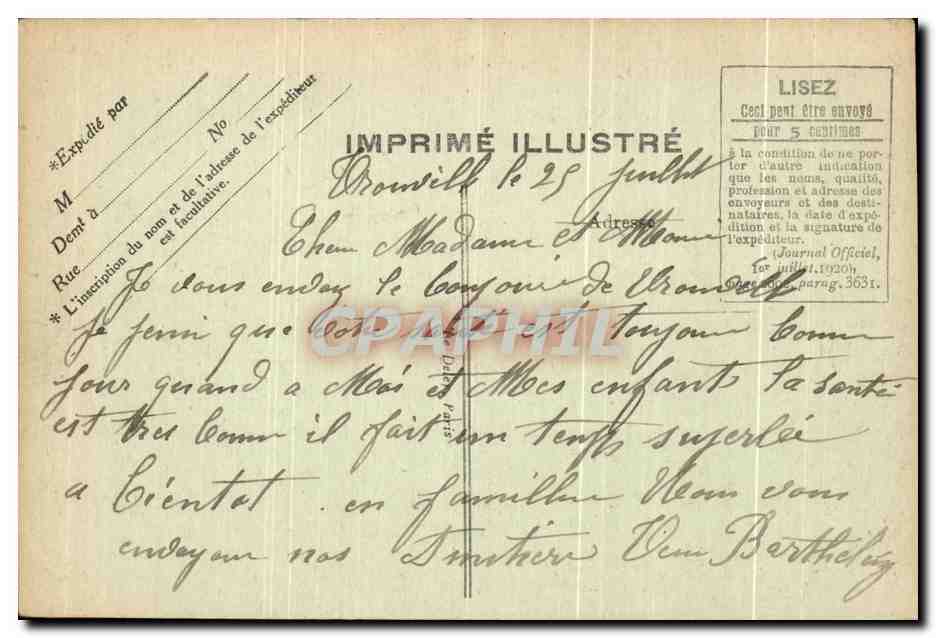 *Expédié par
M
Demt à
No
Rue
* L'inscription du nom et de l'adresse de l'expéditeur
est facultative.
IMPRIMÉ ILLUSTRÉ
Adresse
LISEZ
Ceci peut être envoyé
pour 5 centimes
à la condition de ne por-
ter d'autre indication
que les noms, qualité,
profession et adresse des
envoyeurs et des desti-
nataires, la date d'expé-
dition et la signature de
l'expéditeur.
(Journal Officiel,
1er juillet 1920),
parag. 3631.
Trouvill le 25 juillet
Madame et
Je vous envoy le de Trouvill
je que est toujour bonne
pour quand a Moi et Mes enfant la santé
est tres bonne il fait un temps superbe
a bientot en famille Nous vous
envoyon nos Barthélémy
Paris
CPAPHIL